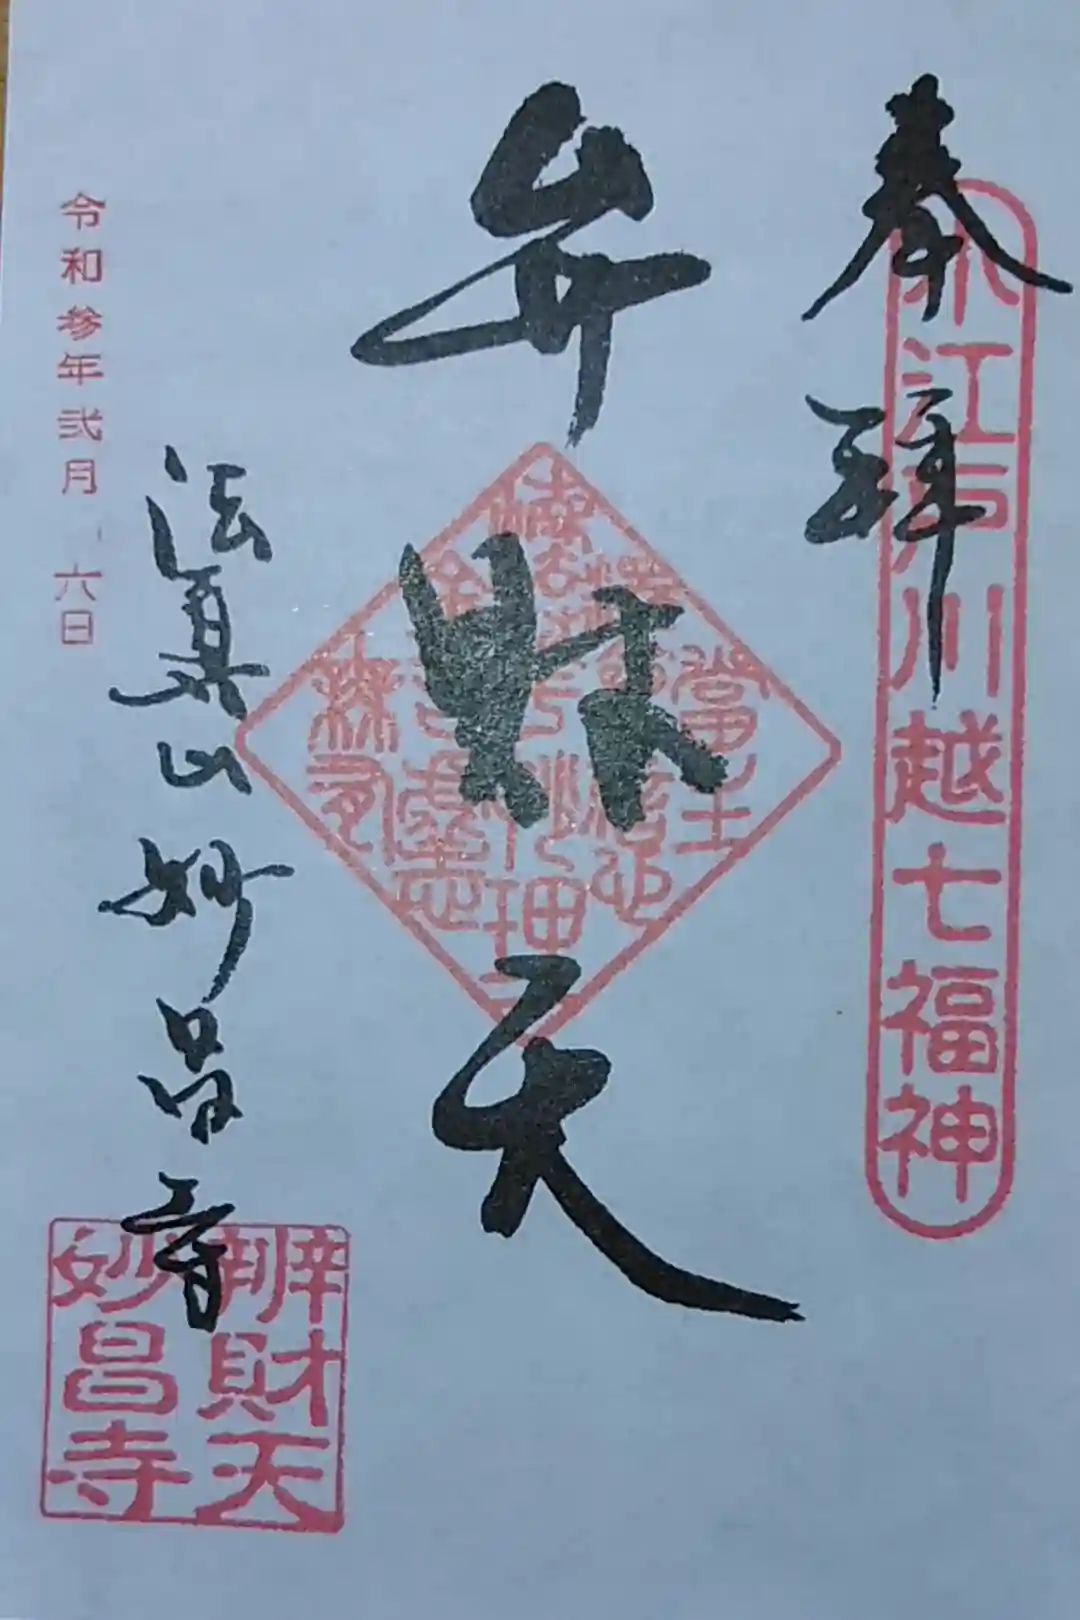 奉拝
小江戸川越七福神
弁財天
法眞山妙昌寺
令和参年弐月 六日
辨財天
妙昌寺